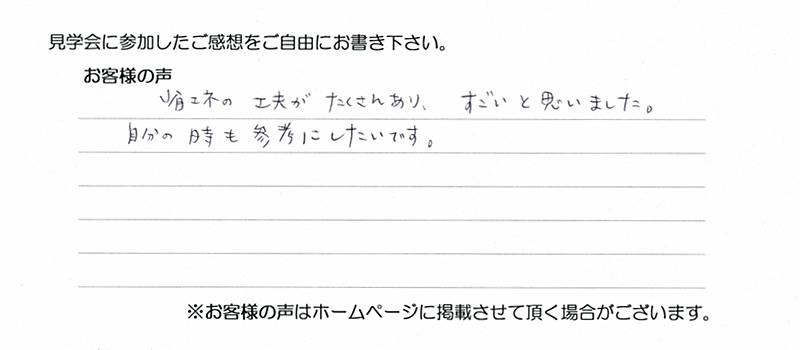 見学会に参加したご感想をご自由にお書き下さい。
お客様の声
省エネの 工夫が たくさんあり、 すごいと思いました。
自分の時も参考にしたいです。
※お客様の声はホームページに掲載させて頂く場合がございます。